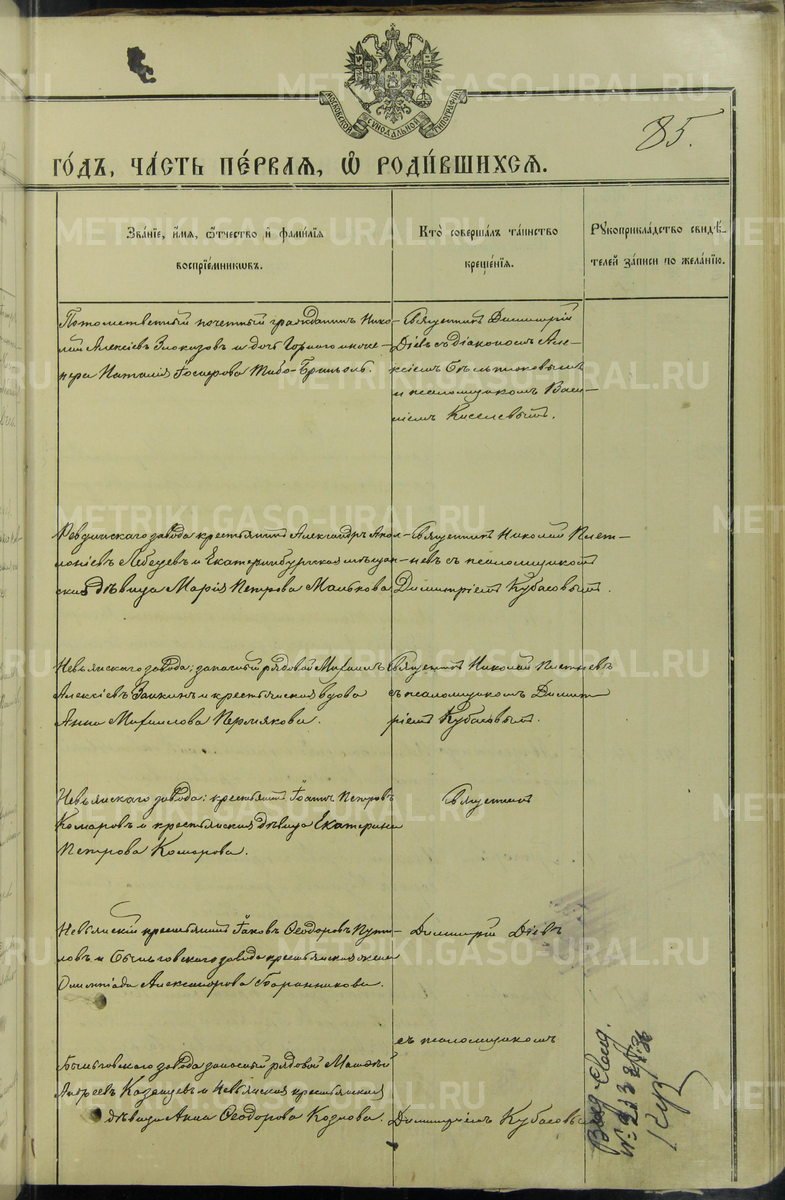 МОСКОВСКОЙ СѴНОДАЛЬНОЙ ТИПОГРАФІИ
85.
ГОДЪ, ЧАСТЬ ПЕРВАЯ, Ѽ РОДИВШИХСЯ.
Званіе, имя, ѻтчество и фамилія
воспріемниковъ.
Кто совершалъ таинство
крещенія.
Рукоприкладство свидѣ-
телей записи по желанію.
Потомственный почетный гражданинъ Нико-
лай Алексѣевъ Злоказовъ и дочь Горнаго инже-
нера Наталія Іосифова Тибо-Бриньоль.
Священникъ Димитрій
Діевъ съ діакономъ Але-
ксіемъ Бѣльтюковымъ
и псаломщикомъ Васи-
ліемъ Киселевымъ.
Ревдинскаго завода крестьянинъ Александръ Апол-
лоніевъ Лебедевъ и Екатеринбургская мѣщан-
ская дѣвица Марія Петрова Малькова
Священникъ Николай Плет-
невъ съ псаломщикомъ
Димитріемъ Кубасовымъ.
Невьянскаго завода: запасный рядовой Михаилъ
Алексѣевъ Заикинъ и крестьянская вдова
Анна Михаилова Пермякова.
Священникъ Николай Плетневъ
съ псаломщикомъ Димит
ріемъ Кубасовымъ.
Невьянскаго завода: крестьянинъ Іоаннъ Петровъ
Комаровъ и крестьянская дѣвица Екатерина
Петрова Комарова.
Священникъ
Невьянскій крестьянинъ Іаковъ Ѳеодоровъ Пути-
ловъ и Быньговскаго завода крестьянская жена
Олимпіада Александрова Баранникова.
Димитрій Діевъ
съ псаломщикомъ
Быньговскаго завода запасный рядовой Матѳей
Андреевъ Казанцевъ и Невьянская крестьянская
дѣвица Анна Ѳеодорова Козлова.
Димитріемъ Кубасовымъ
METRIKI.GASO-URAL.RU